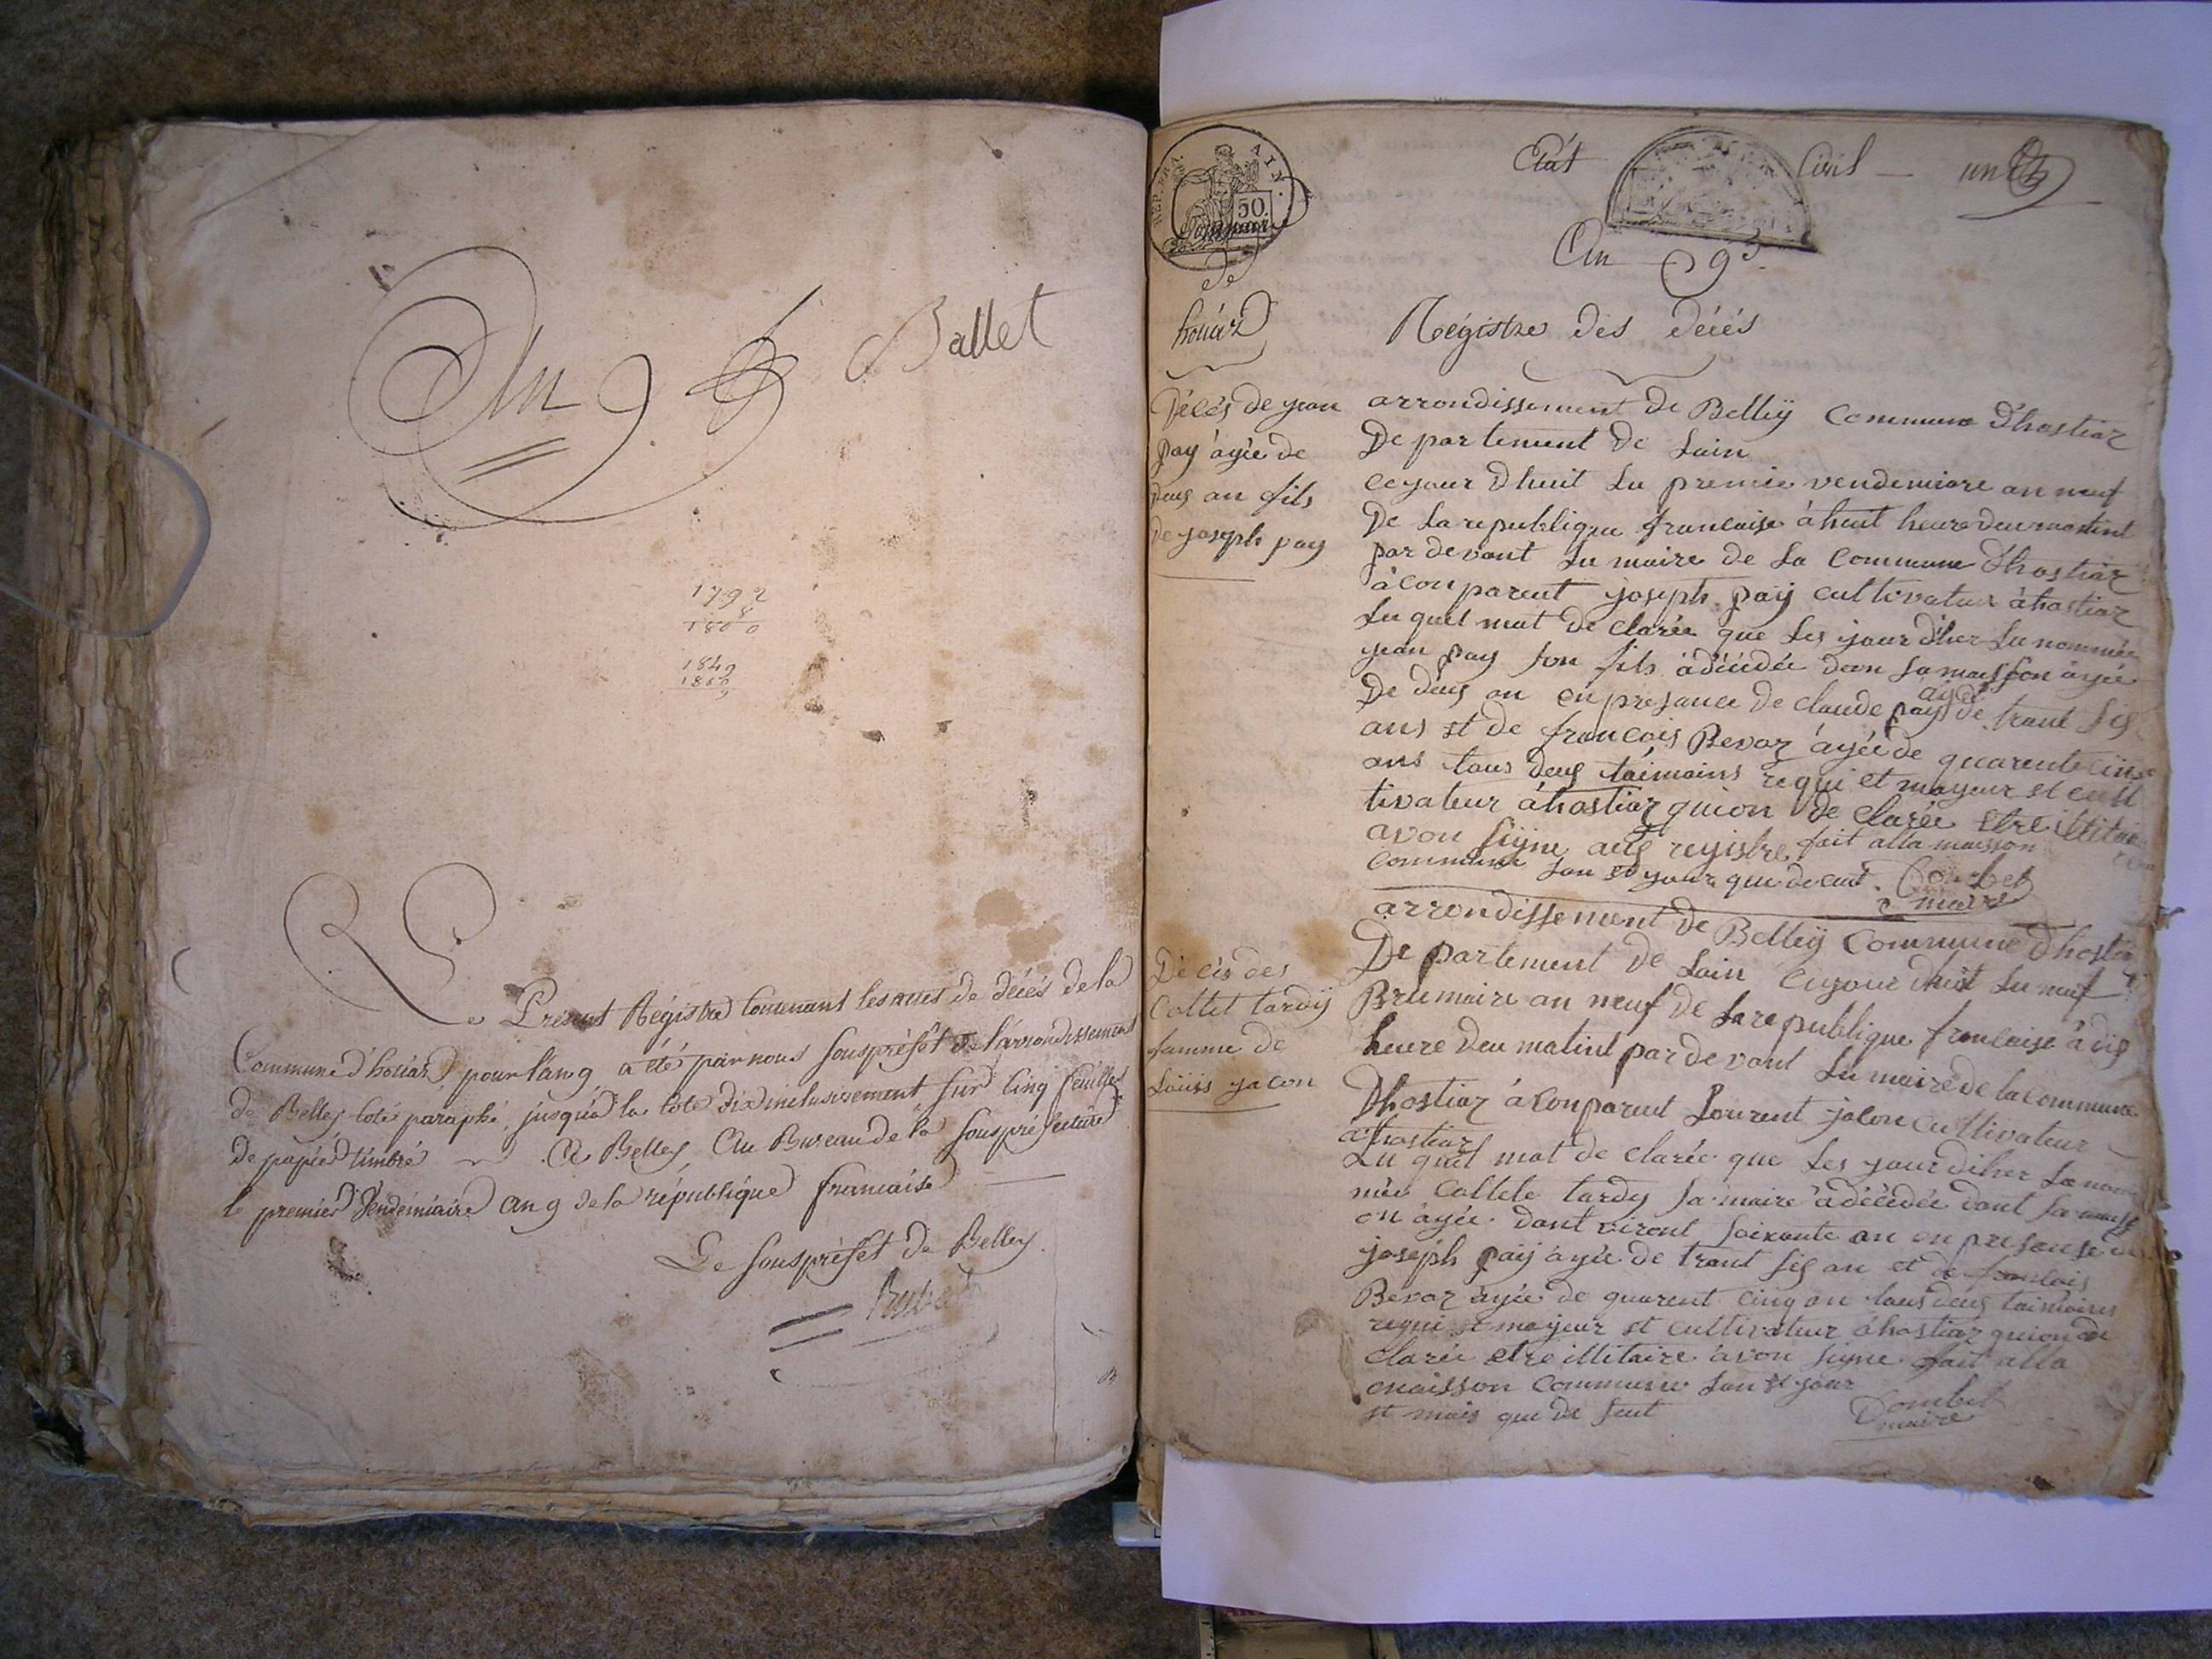 An 9 Ballet
1792
8
1800
1849
1860
9
Le Présent Régistre Contenant les actes de décés de la
Commune d'houiard, pour l'an 9 a été par nous Souspréfêt de l'arrondissement
de Belley coté paraphé, jusqu'à la cote dix inclusivement sur cinq feuilles
de papier timbré A Belley Au Bureau de la Souspréfecture
le premier Vendémiaire an 9 de la république francaise
Le Souspréfet de Belley
REP. FRA. AIN.
50.
Etat Civil un
An 9
de
houiard
Régistre des décés
Décés de jean
pay àgée de
deus an fils
de joseph pay
arrondissement de Belleÿ Commune d'hostiaz
De partement de Lain
ce jour dhuit Lu premie vendemiare an neuf
De La republique francaise à huit heure deu matint
par devant Lu maire de La Commune d'hostiaz
à conparent joseph paÿ cultivateur àhostiaz
Lu quel mat de clarée que Les jour d'her Lu nommée
jean pay son fils àdécédée dan Sa maisson àgée
De deus an en presance de claude paÿ àgée de trant sis
ans et de francois Bevoz àgée de quarente cinc
ans taus deus taimains requi et mayeur et cult
tivateur àhostiaz quion de clarée etre illitaire
avon signe aus registre fait alla maisson
commune Jan et jour que de cut. Combet
maire
arrondissement de Belleÿ Commune d'hostiaz
De partement de Lain Cejour dhuit Lu neuf
Brumaire an neuf de La republique francaise à dis
heure deu matint par de vant Lu maire de la commune
Dhostiaz à conparent Lourent jacon Cultivateur
àhostiaz
Lu quel mat de clarée que Les jour diher La nom
mée Collete tardy sa maire àdécédée dant sa maiss
on àgée dant viront soixante an en presanse de
joseph paÿ àgée de trant sis an et de francois
Bevoz àgée de quarent cinq an taus deus taimains
requi et mayeur et cultivateur àhostiaz quion de
clarée etre illitaire avon signe fait alla
maisson Commune Lan et jour
et mais que de sut Combet
maire
Décés des
Collet tardÿ
famme de
Loüiss jacon